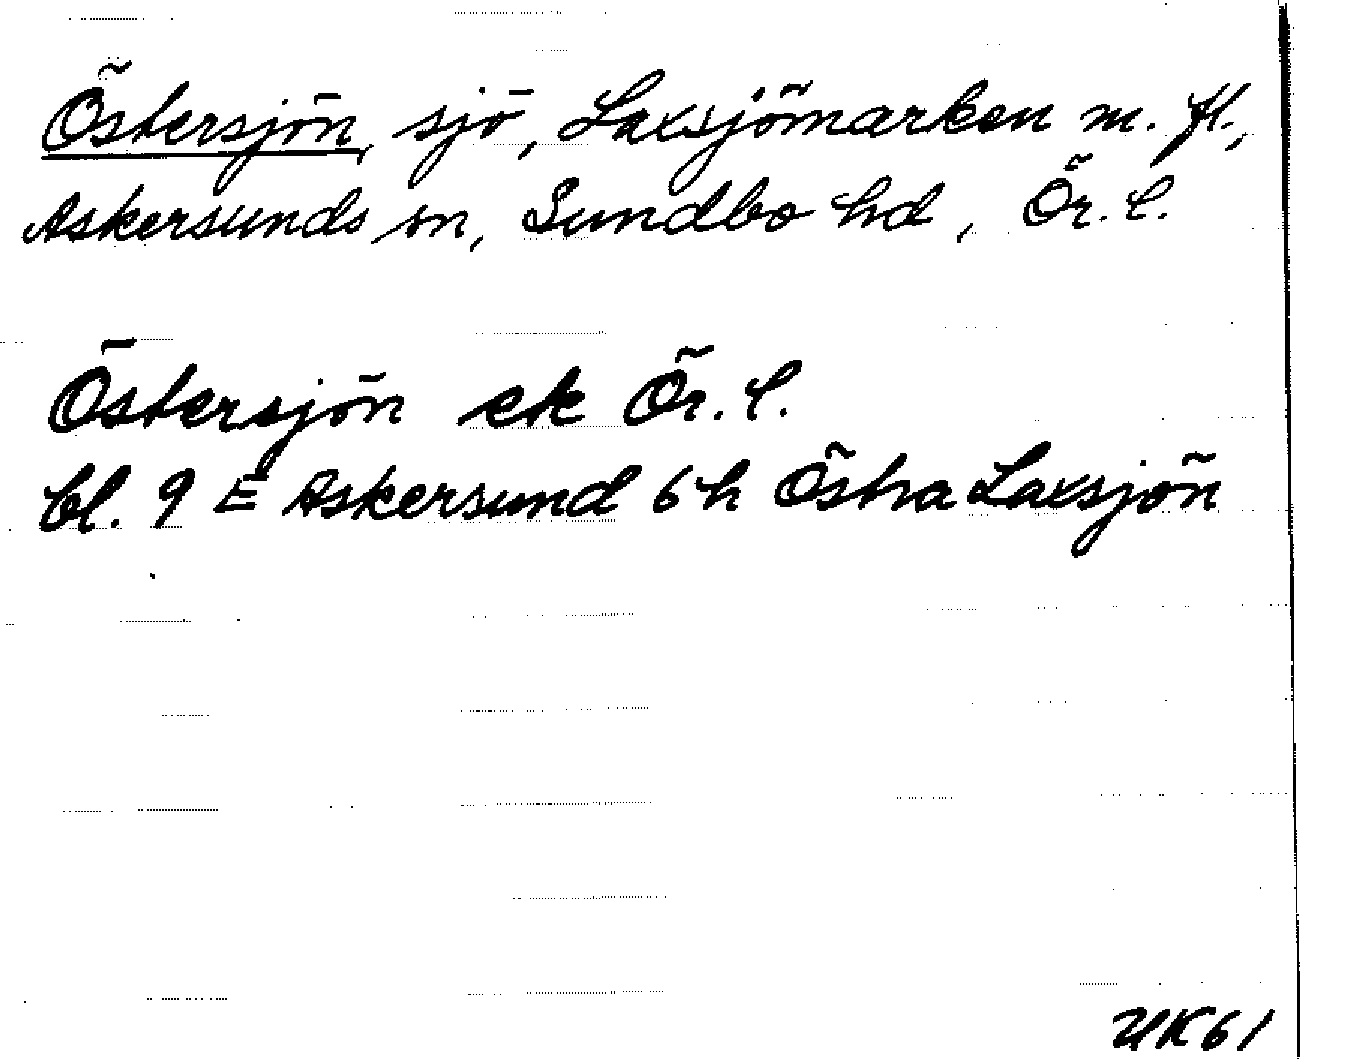 Östersjön, sjö, Laxsjömarken m. fl.,
Askersunds sn, Sundbo hd, Ör. l.
Östersjön ek Ör. l.
bl. 9 E Askersund 6h Östra Laxsjön
UK61